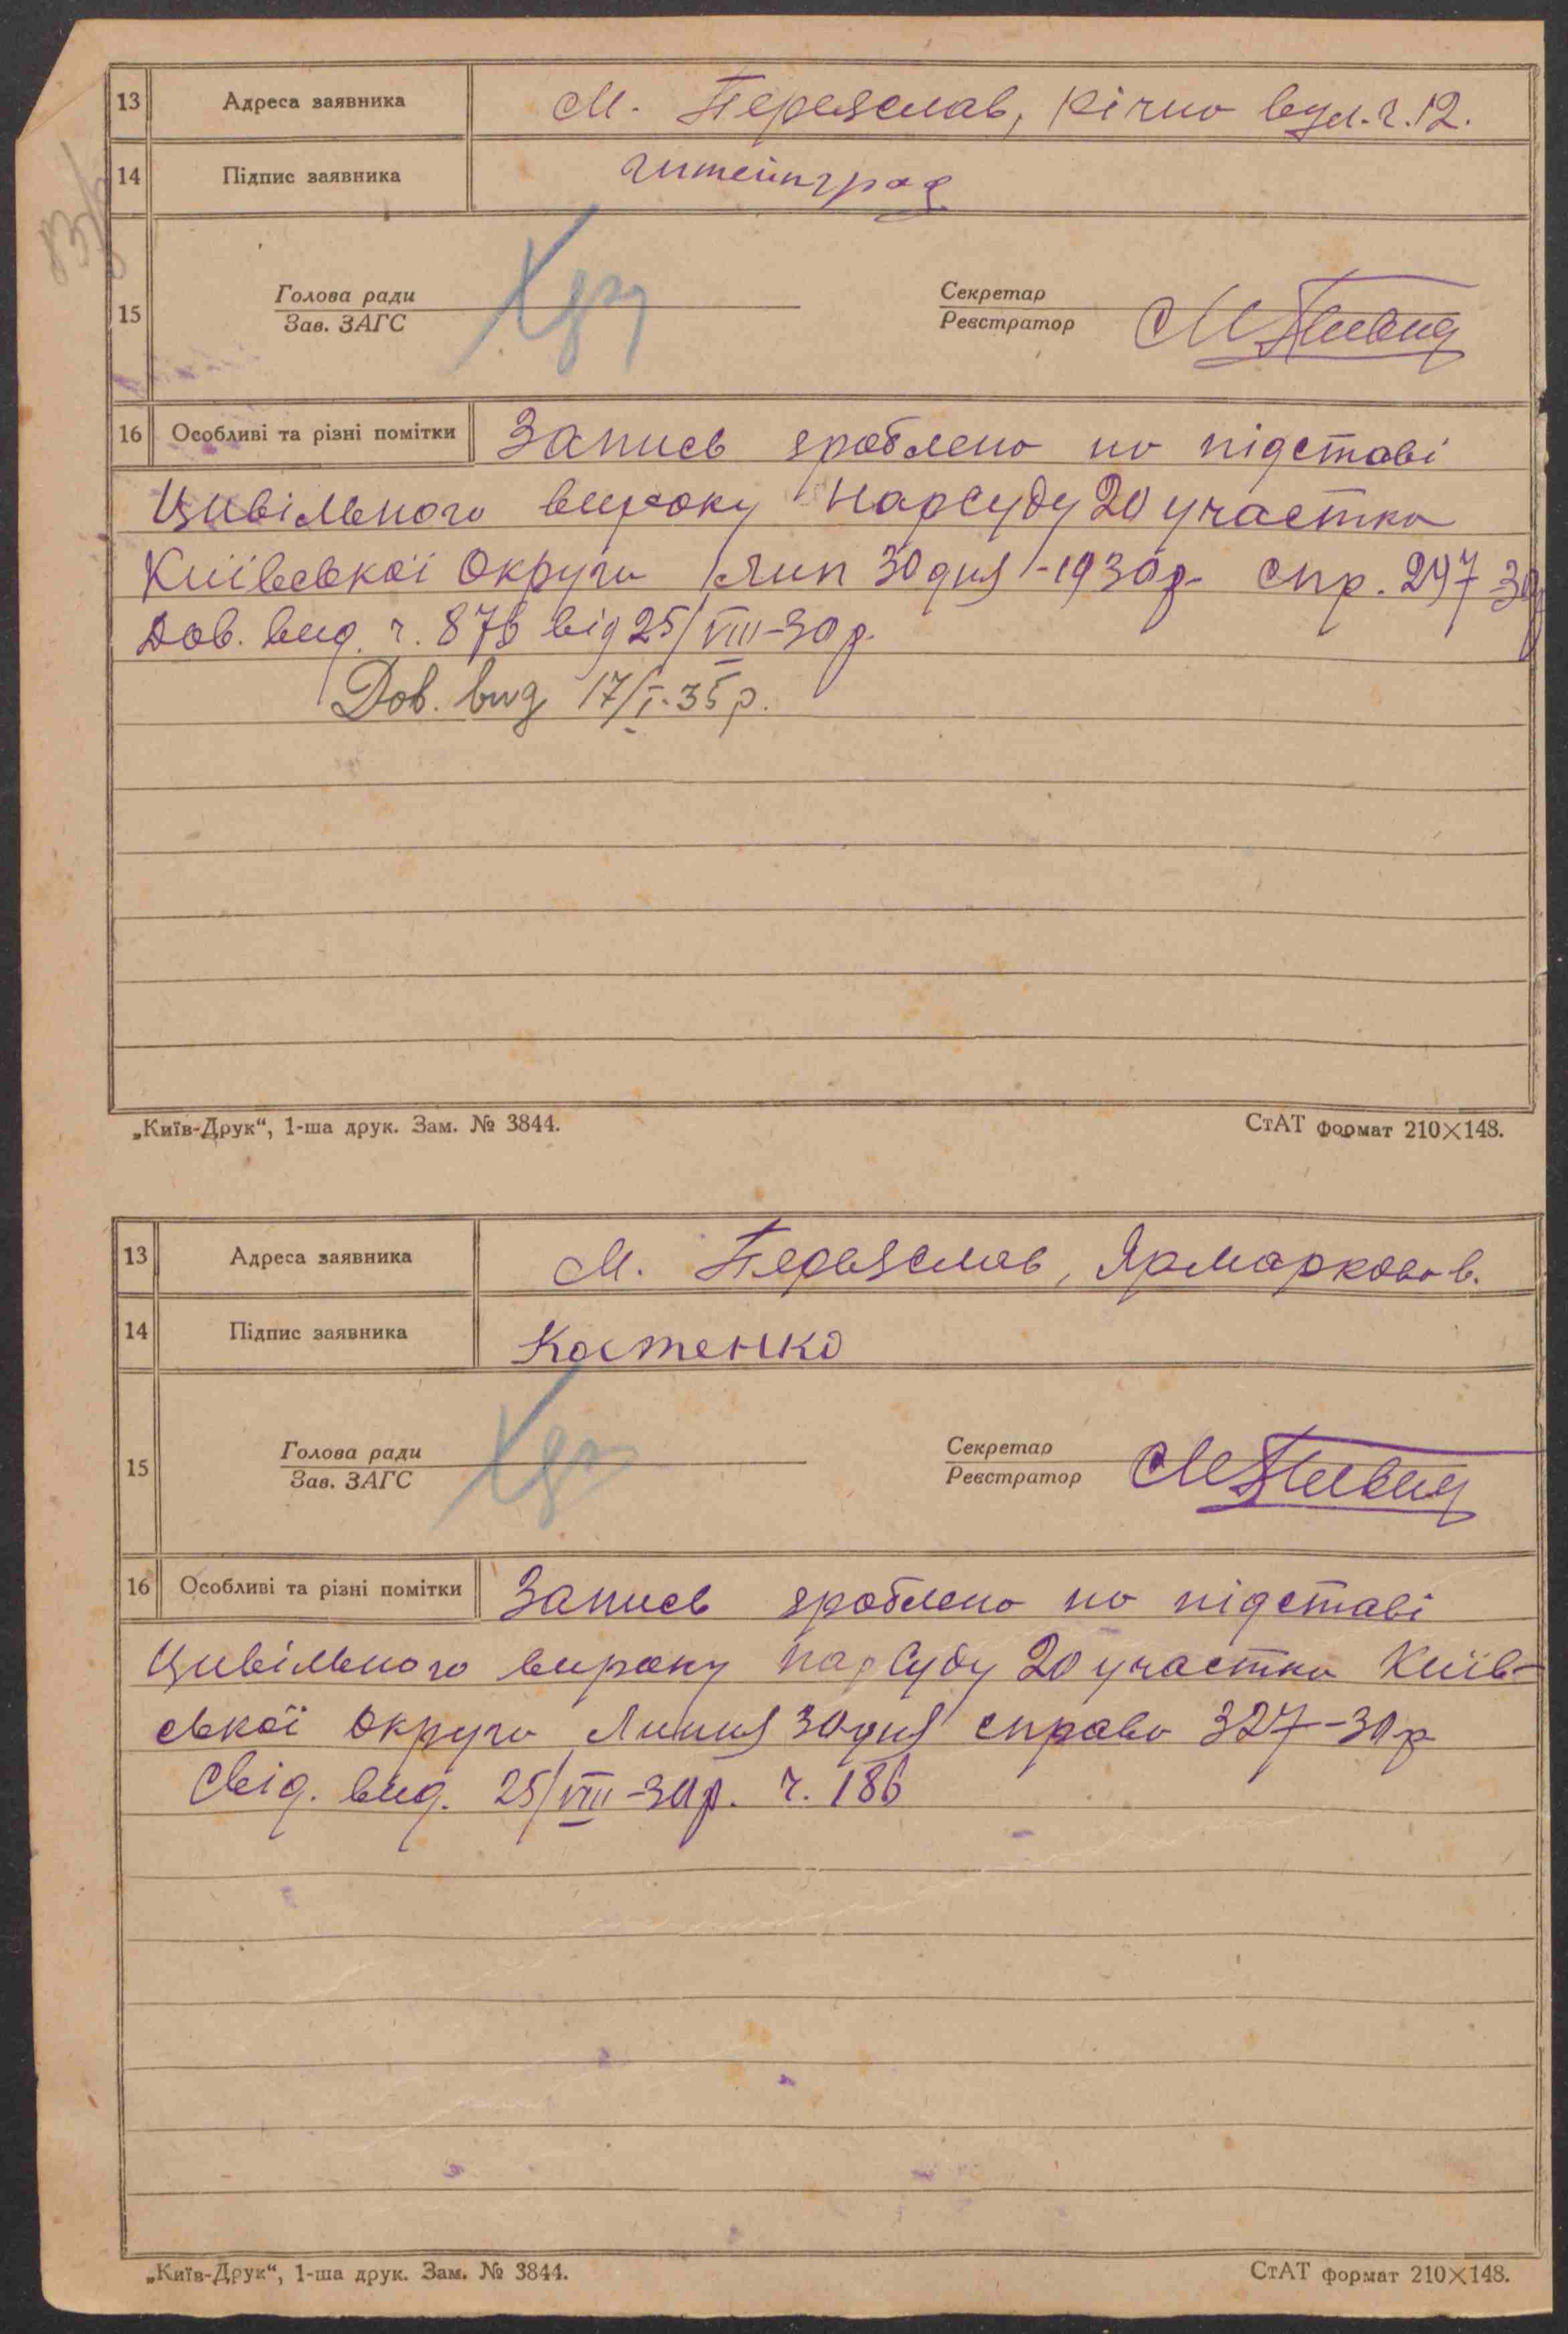 13 Адреса заявника М. Переяслав, Річно вул. ч. 12.
14 Підпис заявника
15 Голова ради Секретар
Зав. ЗАГС Реєстратор
16 Особливі та різні помітки Запись зроблено на підставі
Цивільного вироку Нарсуду 20 участка
Київської Округи Лип 30 дня 1930р. спр. 297-30
Дов. вид. ч. 876 від 25/VIII-30р.
Дов. вид 17/I-35р.
„Київ-Друк“, 1-ша друк. Зам. № 3844. СтАТ формат 210×148.
13 Адреса заявника М. Переяслав, Ярмаркова в.
14 Підпис заявника Костенко
15 Голова ради Секретар
Зав. ЗАГС Реєстратор
16 Особливі та різні помітки Запись зроблено на підставі
Цивільного вироку нарсуду 20 участка Київ-
ської Округи Липня 30 дня справа 327-30р
Свід. вид. 25/VIII-30р. ч. 186
„Київ-Друк“, 1-ша друк. Зам. № 3844. СтАТ формат 210×148.